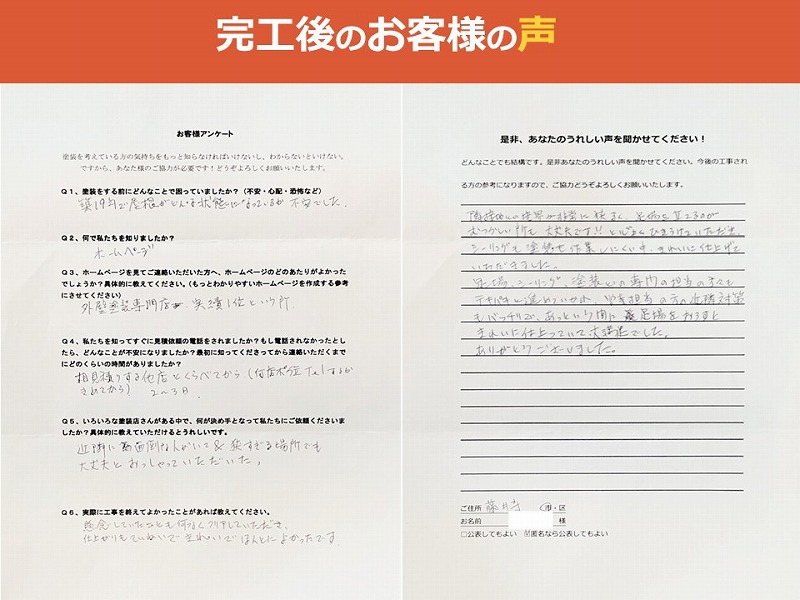 完工後のお客様の声
お客様アンケート
塗装を考えている方の気持ちをもっと知らなければいけないし、わからないといけない。
ですから、あなた様のご協力が必要です！どうぞよろしくお願いいたします。
Q1、塗装をする前にどんなことで困っていましたか？（不安・心配・恐怖など）
築19年で屋根がどんな状態になっているか不安でした。
Q2、何で私たちを知りましたか？
ホームページ
Q3、ホームページを見てご連絡いただいた方へ、ホームページのどのあたりがよかった
でしょうか？具体的に教えてください。（もっとわかりやすいホームページを作成する参考
にさせてください）
外壁塗装専門店、実績1位という所
Q4、私たちを知ってすぐに見積依頼の電話をされましたか？もし電話されなかったとし
たら、どんなことが不安になりましたか？最初に知ってくださってから連絡いただくまで
にどのくらいの時間がありましたか？
相見積りする他店とくらべてから（何店ポ位Telするか
きめてから） 2〜3日
Q5、いろいろな塗装店さんがある中で、何が決め手となって私たちにご依頼くださいま
したか？具体的に教えていただけるとうれしいです。
近隣に面倒な人がいて&狭すぎる場所でも
大丈夫とおっしゃっていただいた。
Q6、実際に工事を終えてよかったことがあれば教えてください。
懸念していたことも何なくクリヤしていただき、
仕上がりもていねいできれいでほんとによかったです。
是非、あなたのうれしい声を聞かせてください！
どんなことでも結構です。是非あなたのうれしい声を聞かせてください。今後の工事され
る方の参考になりますので、ご協力どうぞよろしくお願いいたします。
隣接地との境界が非常に狭く、足場を立てるのが
むつかしい所も大丈夫です!!と心よくひきうけていただき
シーリングも塗装も作業しにくい中、きれいに仕上げて
いただきました。
足場、シーリング、塗装との専門の担当の方々も
テキパキと進めていかれ、営業担当の方の近隣対策
もバッチリで、あっという間に足場をおろすと
きれいに仕上っていて大満足でした。
ありがとうございました。
ご住所 藤井寺 市・区
お名前 様
□公表してもよい ☑匿名なら公表してもよい